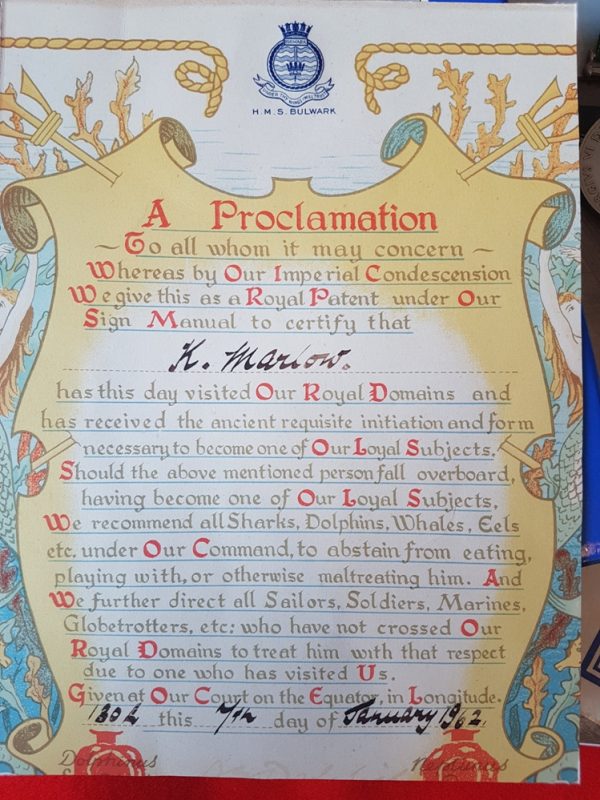 H.M.S. BULWARK
A Proclamation
~ To all whom it may concern ~
Whereas by Our Imperial Condescension
We give this as a Royal Patent under Our
Sign Manual to certify that
K. Marlow.
has this day visited Our Royal Domains and
has received the ancient requisite initiation and form
necessary to become one of Our Loyal Subjects.
Should the above mentioned person fall overboard,
having become one of Our Loyal Subjects,
We recommend all Sharks, Dolphins, Whales, Eels
etc. under Our Command, to abstain from eating,
playing with, or otherwise maltreating him. And
We further direct all Sailors, Soldiers, Marines,
Globetrotters, etc: who have not crossed Our
Royal Domains to treat him with that respect
due to one who has visited Us.
Given at Our Court on the Equator, in Longitude.
this 7th day of January 1962.
Dolphinus
Neptunus